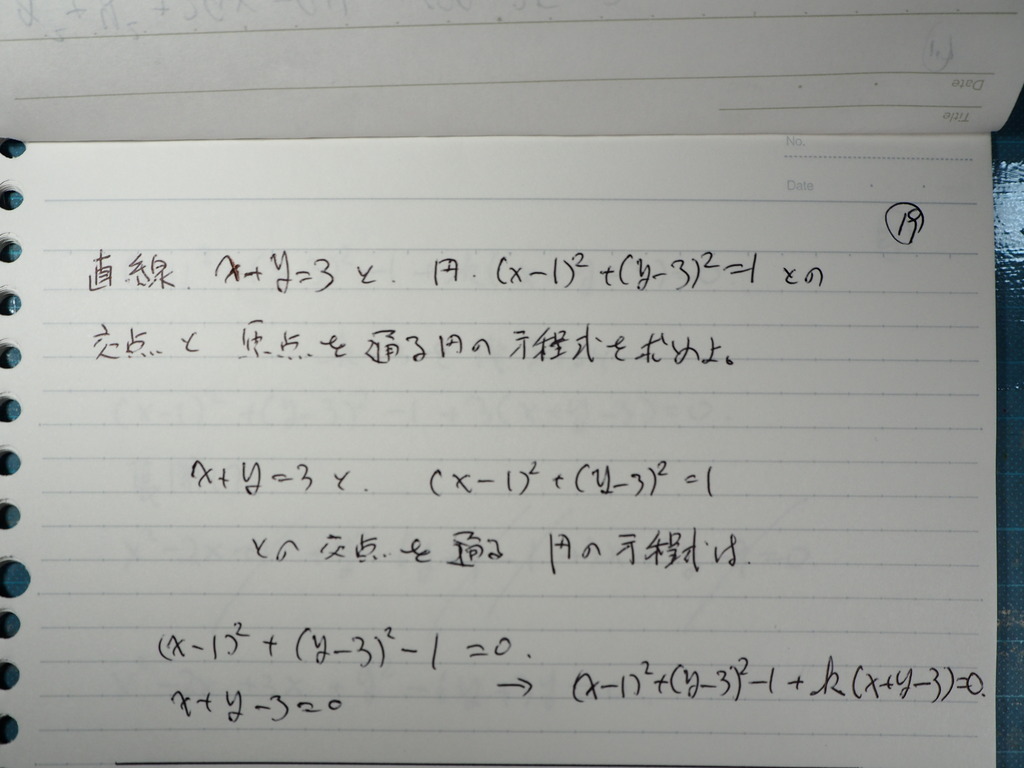 No.
Date
Title
Date
⑲
直線. x+y=3 と. 円. (x-1)²+(y-3)²=1 との
交点と 原点を通る円の方程式を求めよ。
x+y=3 と. (x-1)²+(y-3)²=1
との交点を通る 円の方程式は.
(x-1)²+(y-3)²-1=0.
x+y-3=0
→ (x-1)²+(y-3)²-1+k(x+y-3)=0.